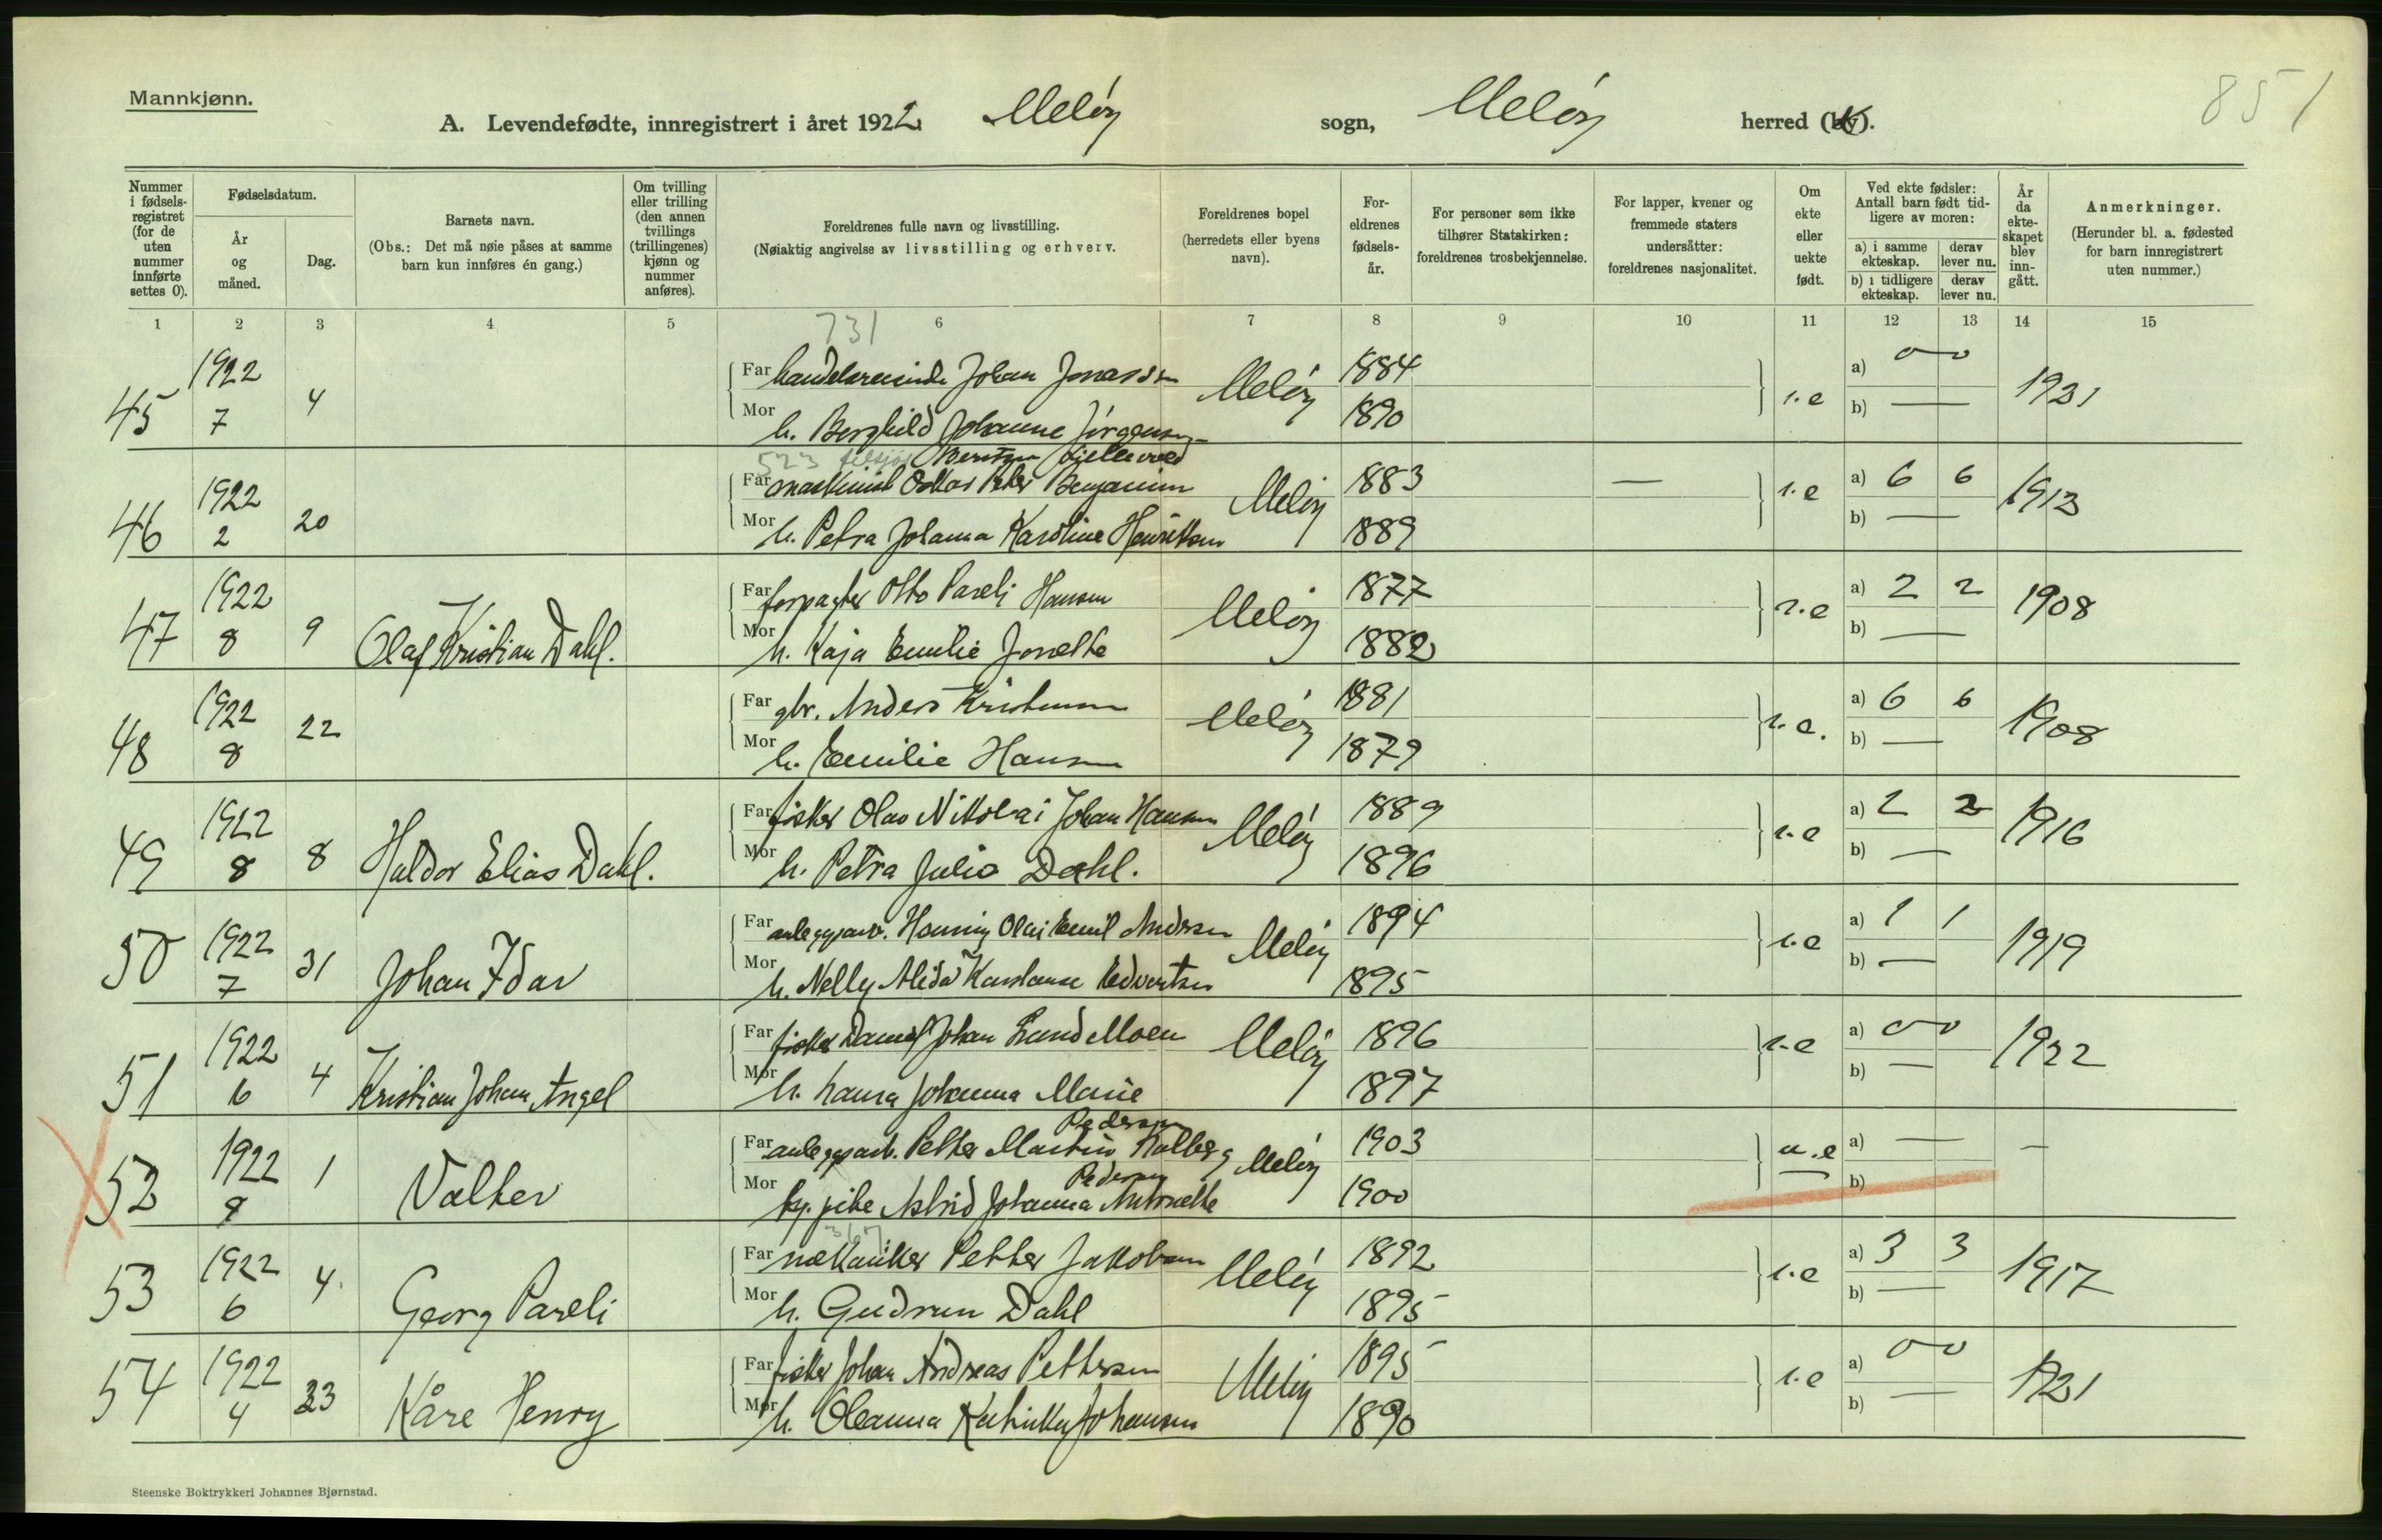 Mannkjønn.
851
A. Levendefødte, innregistrert i året 1922 Meløy sogn, Meløy herred (by).
Nummer i fødsels-registret (for de uten nummer innførte settes 0).
Fødselsdatum.
År og måned.
Dag.
Barnets navn.
(Obs.: Det må nøie påses at samme barn kun innføres én gang.)
Om tvilling eller trilling (den annen tvillings (trillingenes) kjønn og nummer anføres).
Foreldrenes fulle navn og livsstilling.
(Nøiaktig angivelse av livsstilling og erhverv.
Foreldrenes bopel (herredets eller byens navn).
For-eldrenes fødsels-år.
For personer som ikke tilhører Statskirken: foreldrenes trosbekjennelse.
For lapper, kvener og fremmede staters undersåtter: foreldrenes nasjonalitet.
Om ekte eller uekte født.
Ved ekte fødsler: Antall barn født tid-ligere av moren:
a) i samme ekteskap. derav lever nu.
b) i tidligere ekteskap. derav lever nu.
År da ekte-skapet blev inn-gått.
Anmerkninger.
(Herunder bl. a. fødested for barn innregistrert uten nummer.)
1 2 3 4 5 6 7 8 9 10 11 12 13 14 15
731
45 1922 7 4 Far Johan Jonassen Meløy 1884 e a) 0 0 1921
Mor h. Borghild Johanne Jørgensen 1890 b) —
523
46 1922 2 20 Far maskinist Oskar Peter Benjamin Meløy 1883 — e a) 6 6 1913
Mor h. Petra Johanna Karoline Henriksen 1889 b) —
47 1922 8 9 Olaf Kristian Dahl. Far forpagter Otto Pareli Hansen Meløy 1877 e a) 2 2 1908
Mor h. Kaja Emilie Jonette 1882 b) —
48 1922 8 22 Far gbr. Anders Kristensen Meløy 1881 e. a) 6 6 1908
Mor h. Emilie Hansen 1879 b) —
49 1922 8 8 Haldor Elias Dahl. Far fisker Olav Nikolai Johan Hansen Meløy 1889 e a) 2 2 1916
Mor h. Petra Julia Dahl. 1896 b) —
50 1922 7 31 Johan Idar Far anleggsarb. Olai Emil Andersen Meløy 1894 e a) 1 1 1919
Mor h. Nelly Alida Konstanse Edvartsen 1895 b) —
51 1922 6 4 Kristian Johan Angel Far fisker Daniel Johan Lund Moen Meløy 1896 e a) 0 0 1922
Mor h. Johanna Marie 1897 b) —
Pedersen
52 1922 8 1 Valter Far anleggsarb. Petter Martin Meløy 1903 u.e a) — —
Pedersen
Mor pike Astrid Johanna Antonette 1900 b)
53 1922 6 4. Georg Pareli Far mekaniker Petter Jakobsen Meløy 1892 e a) 3 3 1917
Mor h. Gudrun Dahl 1895 b) —
54 1922 4 23 Kåre Henry Far fisker Johan Andreas Pettersen Meløy 1895 e a) 0 0 1921
Mor h. Oleanna Johansen 1890 b) —
Steenske Boktrykkeri Johannes Bjørnstad.